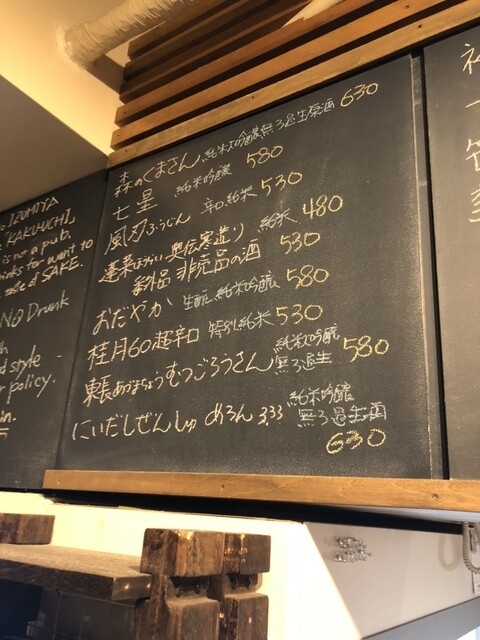 IZUMIYA
KAKUUCHI,
is not a pub.
drinks for want to
taste of SAKE.
NO Drunk
style -
r policy.
森のくまさん 純米大吟醸無ろ過生原酒 630
七星 純米吟醸 580
風刃ふうじん 辛口純米 530
蓬莱ほうらい奥伝寒造り 純米 480
非売品の酒 530
おだやか 生酛純米吟醸 580
桂月60超辛口 特別純米 530
東長あづまちょうむつごろうさん 純米大吟醸 無ろ過生 580
にいだしぜんしゅ めろん3.33 純米吟醸 無ろ過生酒
630